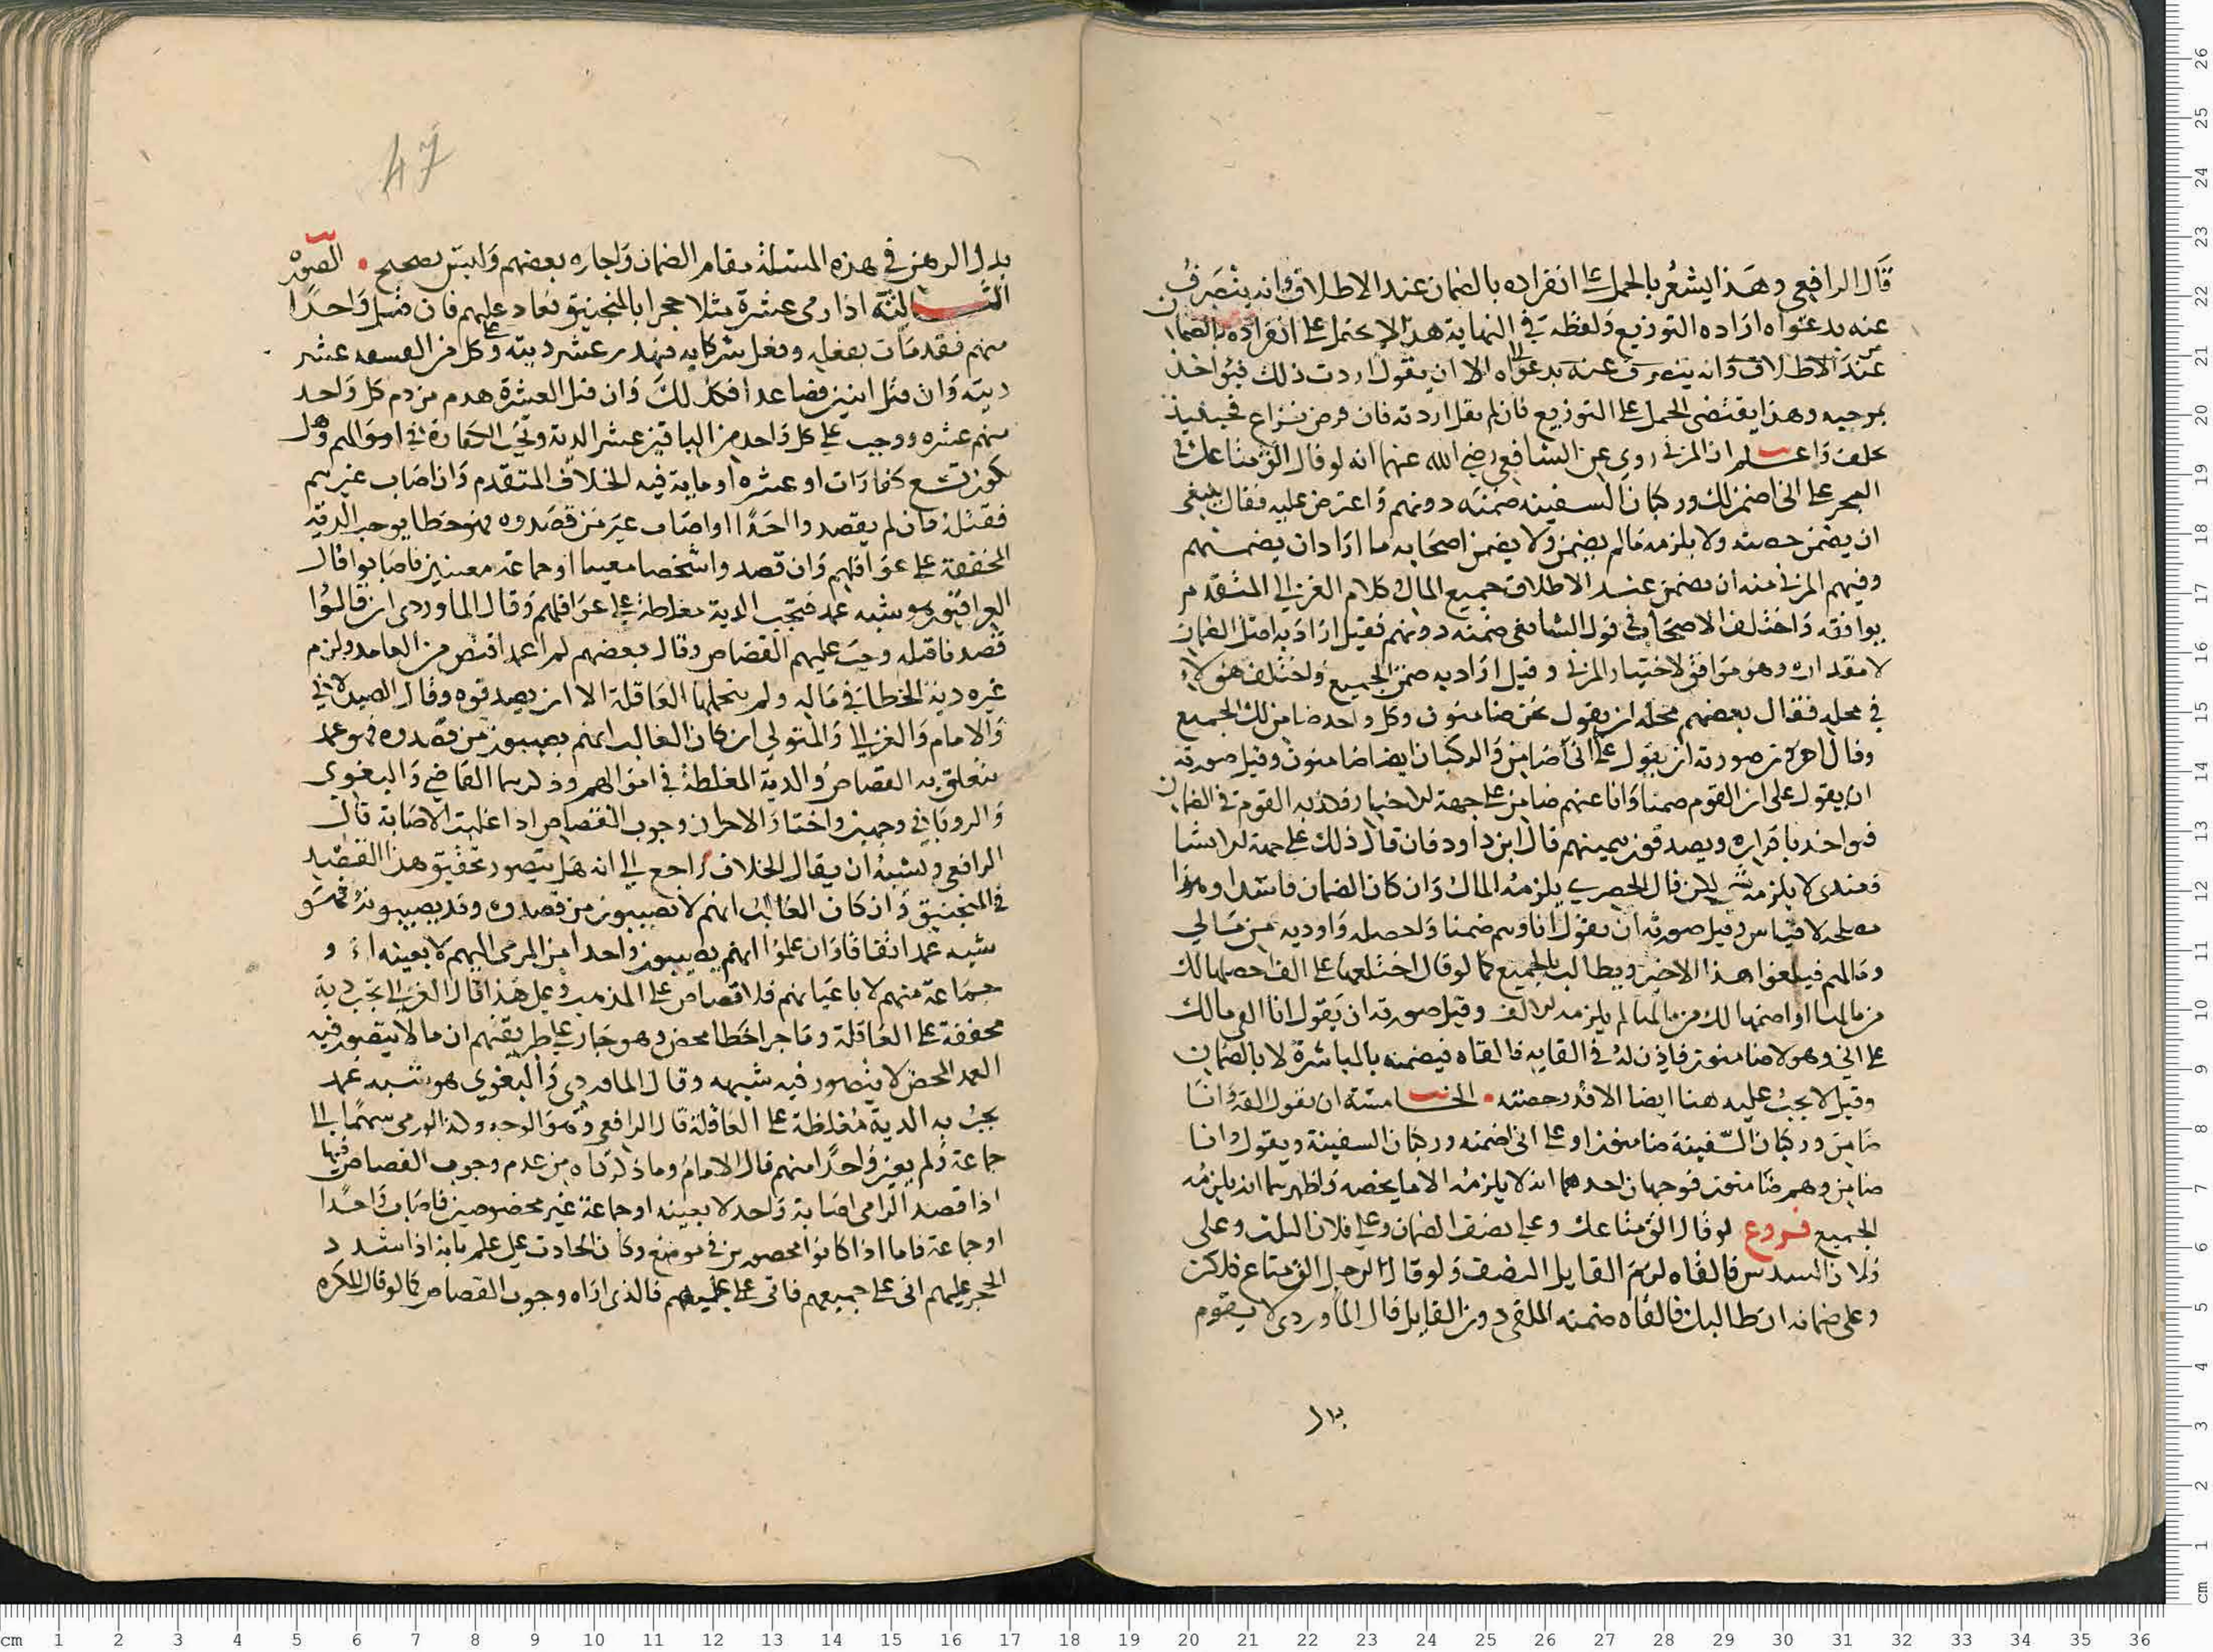 قال الرافعي وهذا يشعر بالحمل على انفراده بالضمان عند الاطلاق وانه ينصرف
عنه بدعواه ارادة التوزيع ولفظه في النهاية هذا لا يحتمل على انفراده بالضمان
عند الاطلاق وانه ينصرف عنه بدعواه الا ان يقول اردت ذلك فيؤاخذ
بموجبه وهذا يقتضي الحمل على التوزيع فان لم يقل اردته فان فرض نزاع فحينيذ
يحلف واعلم ان المزني روي عن الشافعي رضي الله عنهما انه لو قال الق متاعك في
البحر على اني اضمن لك وركبان السفينه ضمنه دونهم واعترض عليه فقال ينبغي
ان يضمن حصته ولا يلزمه مالم يضمن ولا يضمن اصحابه ما اراد ان يضمنهم
وفهم المزني منه ان يضمن عند الاطلاق جميع المال وكلام الغزالي المتقدم
يوافقه واختلف الاصحاب في قول الشافعي ضمنه دونهم فقيل اراد به اصل الضمان
لا مقداره وهو موافق لاختيار المزني وقيل اراد به ضمن الجميع واختلف هؤلاء
في محله فقال بعضهم محله ان يقول نحن ضامنون وكل واحد ضامن لك الجميع
وقال اخرون صورته ان يقول على اني ضامن والركبان ايضا ضامنون وقيل صورته
ان يقول على ان القوم ضمنا وانا عنهم ضامن على جهة الاخبار فكذبه القوم في الضمان
فيواخذ باقراره ويصدقون بيمينهم قال ابن داود فان قال ذلك على جهة الانشا
فعندي لا يلزمه شي لكن قال الحصري يلزمه المال وان كان الضمان فاسدا وهذا
مصلحه لا قياس وقيل صورته ان يقول انا وهم ضمنا ولحصله واوديه من مالي
ومالهم فيلغوا هذا الاخير ويطالب بالجميع كما لو قال اختلعها على الف احصلها لك
من مالها او اضمنها لك من مالها لم يلزمه الالف وقيل صورته ان يقول انا القي مالك
على اني وهولا ضامنون فاذن له في القايه فالقاه فيضمنه بالمباشرة لا بالضمان
وقيل لا يجب عليه هنا ايضا الا قدر حصته • الخامسة ان يقول القه وانا
ضامن وركبان السفينة ضامنون او على اني اضمنه وركبان السفينة ويقول وانا
ضامن وهم ضامنون فوجهان احدهما انه لا يلزمه الا ما يخصه واظهرهما انه يلزمه
الجميع فروع لو قال الق متاعك وعلي نصف الضمان وعلى فلان الثلث وعلى
فلان السدس فالقاه لزم القايل النصف ولو قال الرجل الق متاع فلان
وعلي ضمانه ان طالبك فالقاه ضمنه الملقي دون القايل قال الماوردي لا يقوم
بدل
47
بدل الرهن في هذه المسئلة مقام الضمان واجازه بعضهم وليس بصحيح • الصورة
الثالثة اذا رمى عشرة مثلا حجرا بالمنجنيق فعاد عليهم فان قتل واحدا
منهم فقد مات بفعله وفعل شركايه فيهدر عشر ديته وعلى كل من التسعه عشر
ديته وان قتل اثنين فصاعدا فكذلك وان قتل العشرة هدم من دم كل واحد
منهم عشره ووجب على كل واحد من الباقين عشر الدية وتجب الكفارة في اموالهم وهل
يكون تسع كفارات او عشره او مايه فيه الخلاف المتقدم وان اصاب غيرهم
فقتله فان لم يقصدوا احدا او اصاب غير من قصدوه فهو خطا يوجب الدية
المخففة على عواقلهم وان قصدوا شخصا معينا او جماعة معينين فاصابوا قال
العراقيون هو شبه عمد فتجب الدية مغلظة على عواقلهم وقال الماوردي ان قالوا
قصدنا قتله وجب عليهم القصاص وقال بعضهم لم اعمد اقتص من العامد ولزم
غيره دية الخطا في ماله ولم يتحملها العاقلة الا ان يصدقوه وقال الصيدلاني
والامام والغزالي والمتولي ان كان الغالب انهم يصيبون من قصدوه فهو عمد
يتعلق به القصاص والدية المغلظة في اموالهم وذكرهما القاضي والبغوي
والروياني وجهين واختار الاحرون وجوب القصاص اذا غلبت الاصابة قال
الرافعي ويشبه ان يقال الخلاف راجع الى انه هل يتصور تحقيق هذا القصد
في المنجنيق وان كان الغالب انهم لا يصيبون من قصدوه وقد يصيبونه فهو
شبه عمد اتفاقا وان علموا انهم يصيبون واحدا من المرمي اليهم لا بعينه او
جماعة منهم لا باعيانهم فلا قصاص على المذهب وعلى هذا قال الغزالي تجب دية
مخففة على العاقلة وما جرا خطا محض وهو جار على طريقتهم ان مالا يتصور فيه
العمد المحض لا يتصور فيه شبهه وقال الماوردي والبغوي هو شبه عمد
يجب به الدية مغلظة على العاقلة قال الرافعي وهو الوجه وكذا لو رمى سهما الى
جماعة ولم يعين واحدا منهم قال الامام وما ذكرناه من عدم وجوب القصاص فيها
اذا قصد الرامي اصابة واحد لا بعينه او جماعة غير مخصوصين فاصاب واحدا
او جماعة فاما اذا كانوا محصورين في موضع وكان الحاذق على علم بانه اذا سدد
الحجر عليهم اتى على جميعهم فاتى على جميعهم فالذي اراه وجوب القصاص كما لو قال المكره